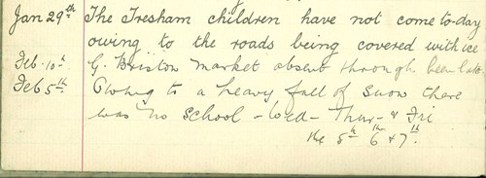 Jan 29th The Tresham children have not come to-day
owing to the roads being covered with ice
Feb. 10th G. Briston Market absent through
Feb 5th Owing to a heavy fall of snow there
was no school - Wed - Thur - & Fri
the 5th 6th & 7th.